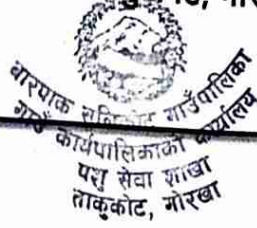 बारपाक सुलिकोट गाउँपालिका
गाउँ कार्यपालिकाको कार्यालय
पशु सेवा शाखा
ताकुकोट, गोरखा